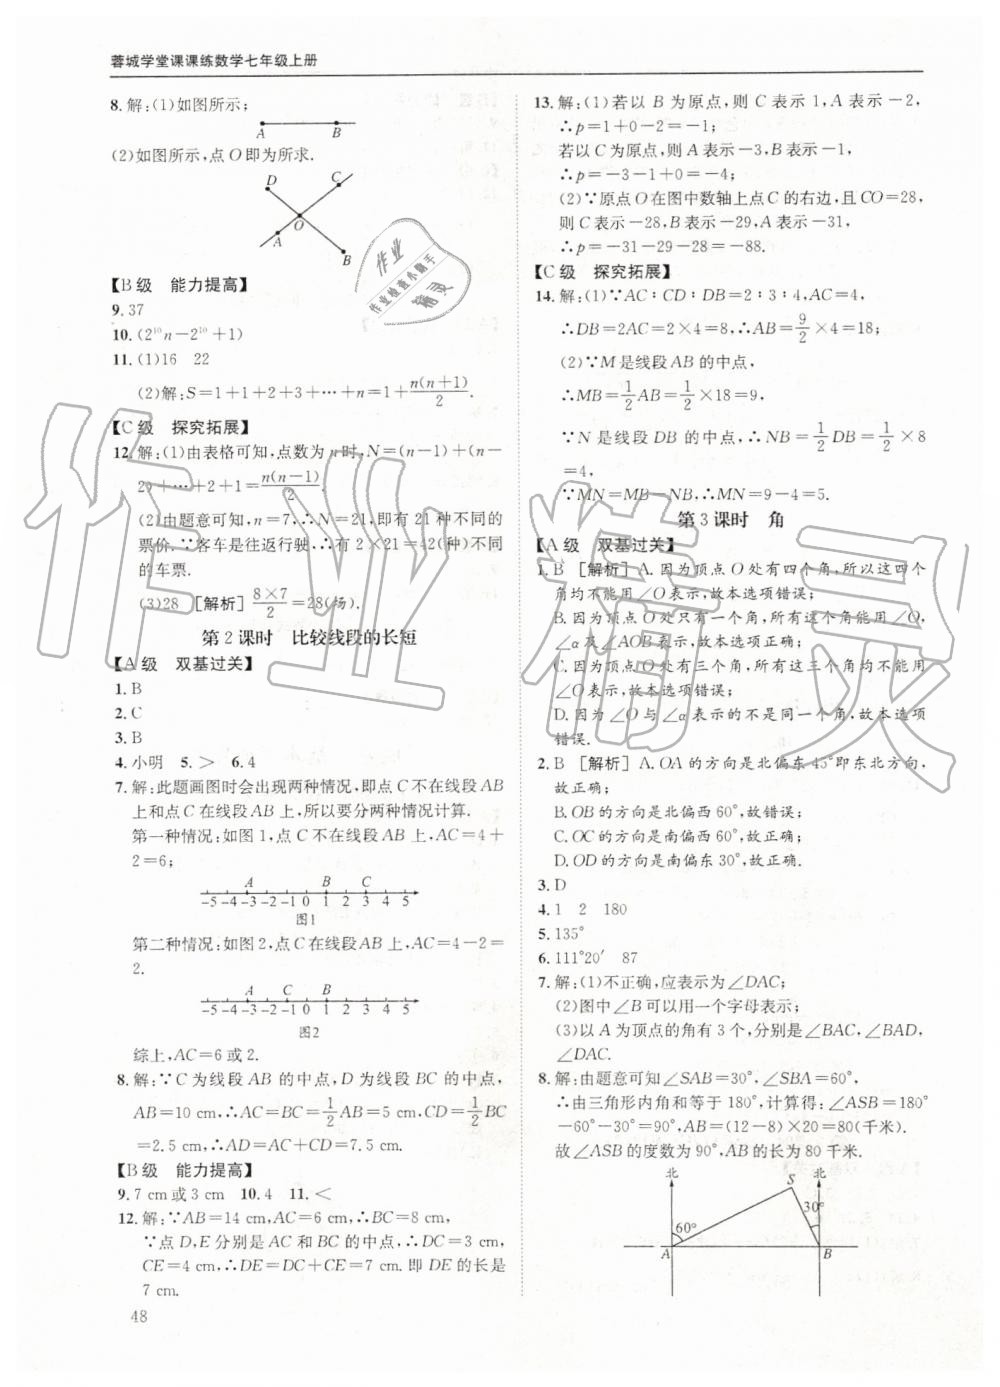 蓉城学堂课课练数学七年级上册
8. 解:(1)如图所示;
A B
(2)如图所示,点 O 即为所求.
D C
O
A
B
【B级 能力提高】
9. 37
10. (2¹⁰n−2¹⁰+1)
11. (1)16 22
(2)解:S=1+1+2+3+⋯+n=n(n+1)/2.
【C级 探究拓展】
12. 解:(1)由表格可知,点数为 n 时,N=(n−1)+(n−
2)+⋯+2+1=n(n−1)/2.
(2)由题意可知,n=7,∴N=21,即有 21 种不同的
票价.∵客车是往返行驶,∴有 2×21=42(种)不同
的车票.
(3)28 [解析] 8×7/2=28(场).
第 2 课时 比较线段的长短
【A级 双基过关】
1. B
2. C
3. B
4. 小明 5. > 6. 4
7. 解:此题画图时会出现两种情况,即点 C 不在线段 AB
上和点 C 在线段 AB 上,所以要分两种情况计算.
第一种情况:如图 1,点 C 不在线段 AB 上,AC=4+
2=6;
A B C
-5 -4 -3 -2 -1 0 1 2 3 4 5
图1
第二种情况:如图 2,点 C 在线段 AB 上,AC=4−2=
2.
A C B
-5 -4 -3 -2 -1 0 1 2 3 4 5
图2
综上,AC=6 或 2.
8. 解:∵C 为线段 AB 的中点,D 为线段 BC 的中点,
AB=10 cm,∴AC=BC=1/2AB=5 cm,CD=1/2BC
=2.5 cm,∴AD=AC+CD=7.5 cm.
【B级 能力提高】
9. 7 cm 或 3 cm 10. 4 11. <
12. 解:∵AB=14 cm,AC=6 cm,∴BC=8 cm,
∵点 D,E 分别是 AC 和 BC 的中点,∴DC=3 cm,
CE=4 cm;∴DE=DC+CE=7 cm. 即 DE 的长是
7 cm.
48
13. 解:(1)若以 B 为原点,则 C 表示 1,A 表示−2,
∴p=1+0−2=−1;
若以 C 为原点,则 A 表示−3,B 表示−1,
∴p=−3−1+0=−4;
(2)∵原点 O 在图中数轴上点 C 的右边,且 CO=28,
则 C 表示−28,B 表示−29,A 表示−31,
∴p=−31−29−28=−88.
【C级 探究拓展】
14. 解:(1)∵AC∶CD∶DB=2∶3∶4,AC=4,
∴DB=2AC=2×4=8,∴AB=9/2×4=18;
(2)∵M 是线段 AB 的中点,
∴MB=1/2AB=1/2×18=9,
∵N 是线段 DB 的中点,∴NB=1/2DB=1/2×8
=4,
∵MN=MB−NB,∴MN=9−4=5.
第 3 课时 角
【A级 双基过关】
1. B [解析] A. 因为顶点 O 处有四个角,所以这四个
角均不能用∠O 表示,故本选项错误;
B. 因为顶点 O 处只有一个角,所以这个角能用∠O,
∠α 及∠AOB 表示,故本选项正确;
C. 因为顶点 O 处有三个角,所有这三个角均不能用
∠O 表示,故本选项错误;
D. 因为∠O 与∠α 表示的不是同一个角,故本选项
错误.
2. B [解析] A. OA 的方向是北偏东 45°即东北方向,
故正确;
B. OB 的方向是北偏西 60°,故错误;
C. OC 的方向是南偏西 60°,故正确;
D. OD 的方向是南偏东 30°,故正确.
3. D
4. 1 2 180
5. 135°
6. 111°20′ 87
7. 解:(1)不正确,应表示为∠DAC;
(2)图中∠B 可以用一个字母表示;
(3)以 A 为顶点的角有 3 个,分别是∠BAC,∠BAD,
∠DAC.
8. 解:由题意可知∠SAB=30°,∠SBA=60°,
∴由三角形内角和等于 180°,计算得:∠ASB=180°
−60°−30°=90°,AB=(12−8)×20=80(千米).
故∠ASB 的度数为 90°,AB 的长为 80 千米.
北 北
S
60° 30°
A B
作业
作业检查小助手
精灵
作业精灵